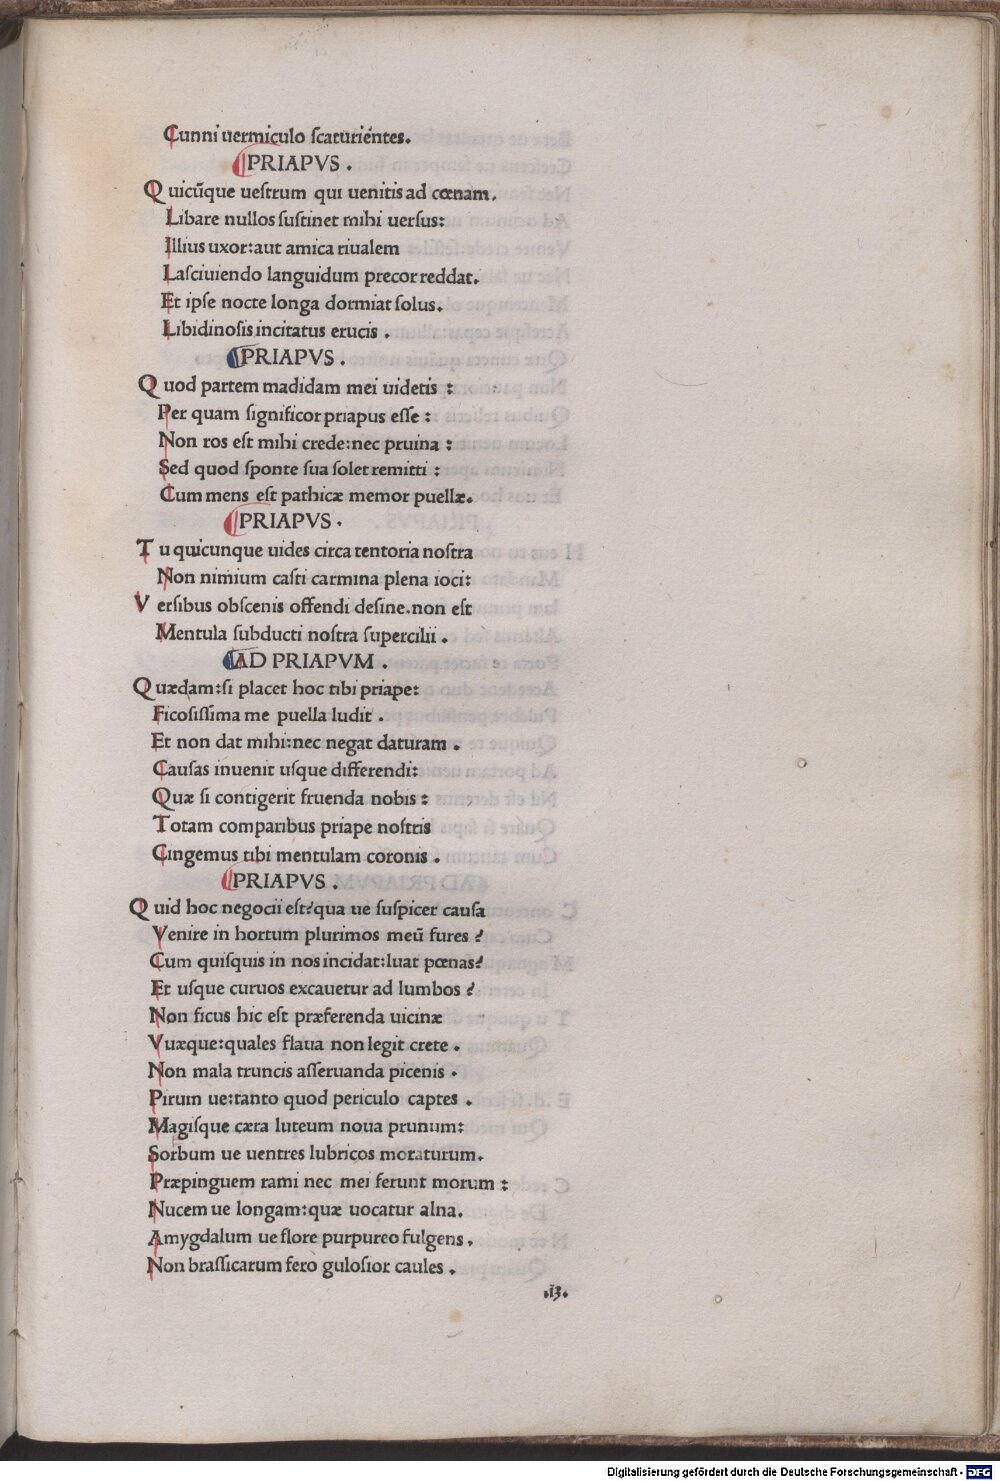 Cunni uermiculo ſcaturiẽtes.
PRIAPVS .
Q uicũque ueſtrum qui uenitis ad cœnam.
Libare nullos ſuſtinet mihi uerſus:
Illius uxor:aut amica riualem
Laſciuiendo languidum precor reddat.
Et ipſe nocte longa dormiat ſolus.
Libidinoſis incitatus erucis .
PRIAPVS .
Q uod partem madidam mei uidetis :
Per quam ſignificor priapus eſſe :
Non ros eſt mihi crede:nec pruina :
Sed quod ſponte ſua ſolet remitti :
Cum mens eſt pathicæ memor puellæ.
PRIAPVS .
T u quicunque uides circa tentoria noſtra
Non nimium caſti carmina plena ioci:
V erſibus obſcenis offendi deſine.non eſt
Mentula ſubducti noſtra ſupercilii .
AD PRIAPVM .
Q uædam:ſi placet hoc tibi priape:
Ficoſiſſima me puella ludit .
Et non dat mihi:nec negat daturam .
Cauſas inuenit uſque differendi:
Quæ ſi contigerit fruenda nobis :
Totam comparibus priape noſtris
Cingemus tibi mentulam coronis .
PRIAPVS .
Q uid hoc negocii eſt?qua ue ſuſpicer cauſa
Venire in hortum plurimos meũ fures ?
Cum quiſquis in nos incidat:luat pœnas?
Et uſque curuos excauetur ad lumbos ?
Non ficus hic eſt præferenda uicinæ
Vuæque:quales flaua non legit crete .
Non mala truncis aſſeruanda picenis .
Pirum ue:tanto quod periculo captes .
Magiſque cæra luteum noua prunum:
Sorbum ue uentres lubricos moraturum.
Præpinguem rami nec mei ferunt morum :
Nucem ue longam:quæ uocatur alna.
Amygdalum ue flore purpureo fulgens .
Non braſſicarum fero guloſior caules .
.i3.
Digitalisierung gefördert durch die Deutsche Forschungsgemeinschaft - DFG